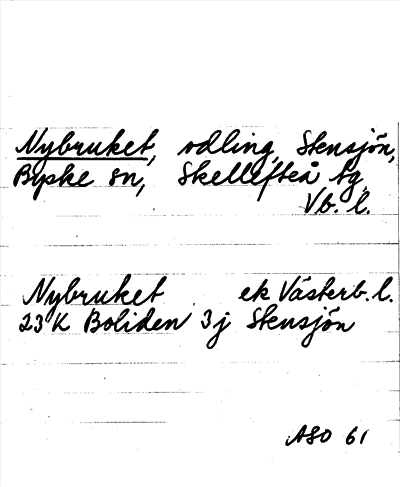 Nybruket, odling, Stensjön,
Byske sn, Skellefteå tg,
Vb. l.
Nybruket ek Västerb. l.
23 K Boliden 3j Stensjön
ASO 61